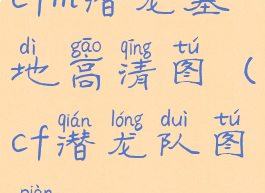 cfm潜龙基
dì gāo qīng tú
地高清图（
qián lóng duì tú
cf潜龙队图
piàn